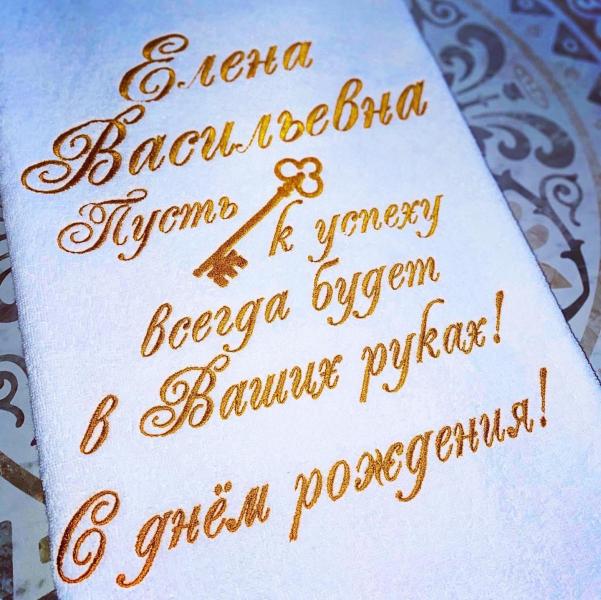 Елена
Васильевна
Пусть к успеху
всегда будет
в Ваших руках!
С днём рождения!